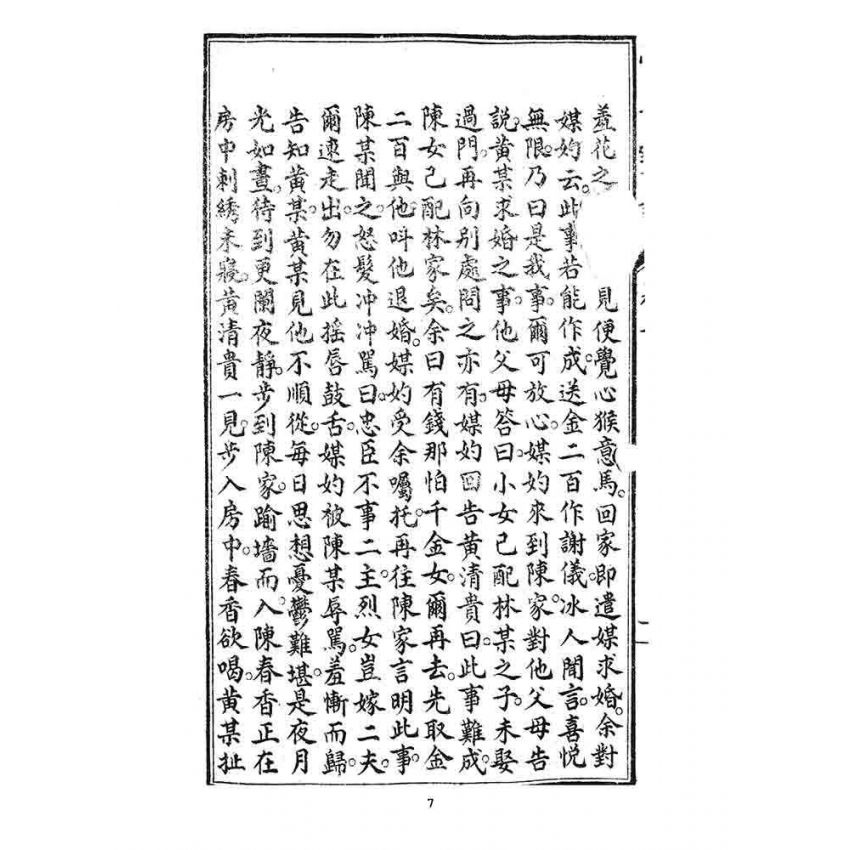 羞花之見便覺心猴意馬。回家即遣媒求婚。余對
媒妁云。此事若能作成。送金二百作謝儀。冰人聞言。喜悅
無限。乃曰是我事。爾可放心。媒妁來到陳家。對他父母告
說。黃某求婚之事。他父母答曰。小女已配林某之子。未娶
過門。再向別處問之亦有。媒妁回告黃清貴曰。此事難成。
陳女已配林家矣。余曰有錢那怕千金女。爾再去。先取金
二百與他。呌他退婚。媒妁受余囑托。再往陳家言明此事。
陳某聞之。怒髮冲冲罵曰。忠臣不事二主。烈女豈嫁二夫。
爾速走出。勿在此搖唇鼓舌。媒妁被陳某辱罵。羞慚而歸。
告知黃某。黃某見他不順從。每日思想憂鬱難堪。是夜月
光如晝。待到更闌夜靜。步到陳家。踰墻而入。陳春香正在
房中刺綉未寢。黃清貴一見。步入房中。春香欲喝。黃某扯
7